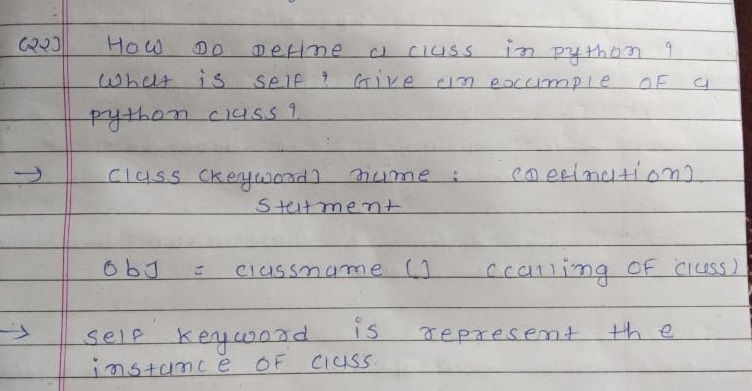 (22) How Do Define a class in python ?
What is self ? Give an example of a
python class ?
→ class (keyword) name : (Defination)
Statment
obj = classname () (calling of class)
→ self keyword is represent the
instance of class.